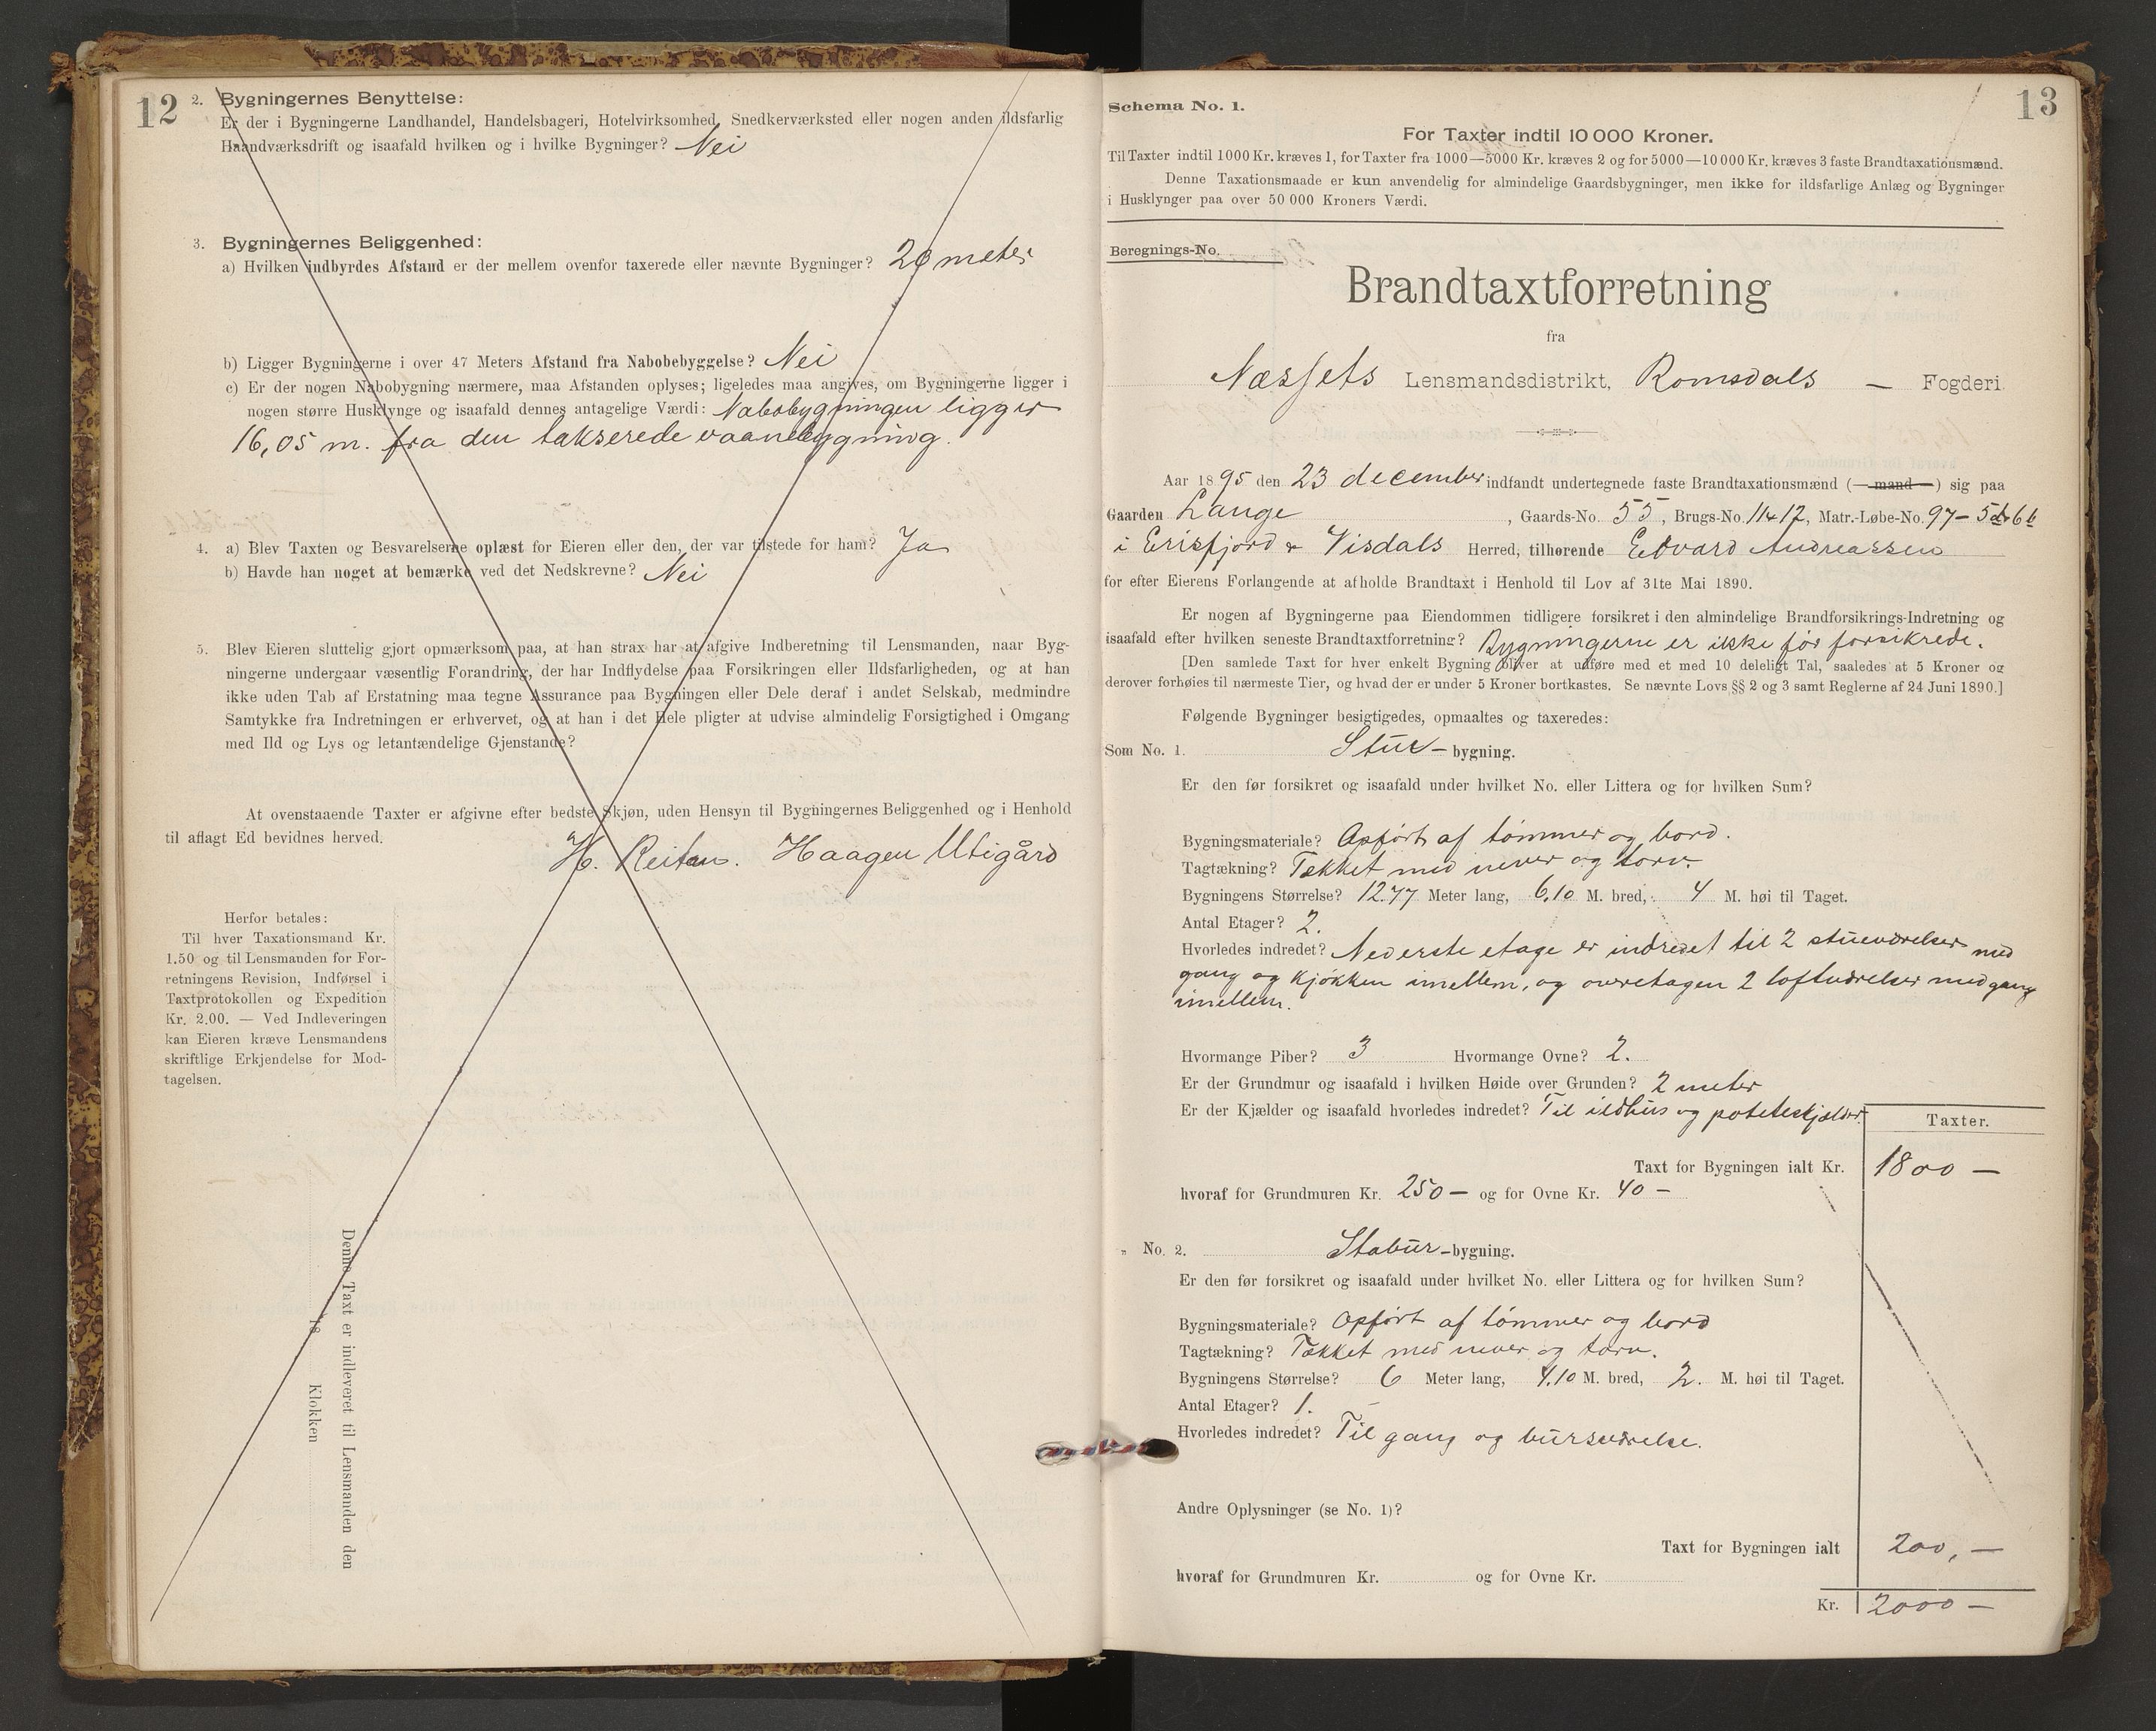 12
2. Bygningernes Benyttelse:
Er der i Bygningerne Landhandel, Handelsbageri, Hotelvirksomhed, Snedkerværksted eller nogen anden ildsfarlig
Haandværksdrift og isaafald hvilken og i hvilke Bygninger? Nei
3. Bygningernes Beliggenhed:
a) Hvilken indbyrdes Afstand er der mellem ovenfor taxerede eller nævnte Bygninger? 20 meter
b) Ligger Bygningerne i over 47 Meters Afstand fra Nabobebyggelse? Nei
c) Er der nogen Nabobygning nærmere, maa Afstanden oplyses; ligeledes maa angives, om Bygningerne ligger i
nogen større Husklynge og isaafald dennes antagelige Værdi: Nabobygningen ligger
16,05 m. fra den takserede vaanebygning.
4. a) Blev Taxten og Besvarelserne oplæst for Eieren eller den, der var tilstede for ham? Ja
b) Havde han noget at bemærke ved det Nedskrevne? Nei
5. Blev Eieren sluttelig gjort opmærksom paa, at han strax har at afgive Indberetning til Lensmanden, naar Byg-
ningerne undergaar væsentlig Forandring, der har Indflydelse paa Forsikringen eller Ildsfarligheden, og at han
ikke uden Tab af Erstatning maa tegne Assurance paa Bygningen eller Dele deraf i andet Selskab, medmindre
Samtykke fra Indretningen er erhvervet, og at han i det Hele pligter at udvise almindelig Forsigtighed i Omgang
med Ild og Lys og letantændelige Gjenstande?
At ovenstaaende Taxter er afgivne efter bedste Skjøn, uden Hensyn til Bygningernes Beliggenhed og i Henhold
til aflagt Ed bevidnes herved.
H. Reitan. Haagen Utigård
Herfor betales:
Til hver Taxationsmand Kr.
1.50 og til Lensmanden for For-
retningens Revision, Indførsel i
Taxtprotokollen og Expedition
Kr. 2.00. — Ved Indleveringen
kan Eieren kræve Lensmandens
skriftlige Erkjendelse for Mod-
tagelsen.
Denne Taxt er indleveret til Lensmanden den
18 Klokken
13
Schema No. 1.
For Taxter indtil 10 000 Kroner.
Til Taxter indtil 1000 Kr. kræves 1, for Taxter fra 1000—5000 Kr. kræves 2 og for 5000—10 000 Kr. kræves 3 faste Brandtaxationsmænd.
Denne Taxationsmaade er kun anvendelig for almindelige Gaardsbygninger, men ikke for ildsfarlige Anlæg og Bygninger
i Husklynger paa over 50 000 Kroners Værdi.
Beregnings-No.
Brandtaxtforretning
fra
Næssets Lensmandsdistrikt, Romsdals — Fogderi
Aar 1895 den 23 december indfandt undertegnede faste Brandtaxationsmænd (—mand—) sig paa
Gaarden Lange, Gaards-No. 55, Brugs-No. 11+12, Matr.-Løbe-No. 97 - 5d+6b
i Erisfjord & Visdals Herred, tilhørende Edvard Andreassen
for efter Eierens Forlangende at afholde Brandtaxt i Henhold til Lov af 31te Mai 1890.
Er nogen af Bygningerne paa Eiendommen tidligere forsikret i den almindelige Brandforsikrings-Indretning og
isaafald efter hvilken seneste Brandtaxtforretning? Bygningerne er ikke før forsikrede.
[Den samlede Taxt for hver enkelt Bygning bliver at udføre med et med 10 deleligt Tal, saaledes at 5 Kroner og
derover forhøies til nærmeste Tier, og hvad der er under 5 Kroner bortkastes. Se nævnte Lovs §§ 2 og 3 samt Reglerne af 24 Juni 1890.]
Følgende Bygninger besigtigedes, opmaaltes og taxeredes:
Som No. 1. Stue-bygning.
Er den før forsikret og isaafald under hvilket No. eller Littera og for hvilken Sum?
Bygningsmateriale? Opført af tømmer og bord.
Tagtækning? Tækket med never og torv.
Bygningens Størrelse? 12.77 Meter lang, 6.10 M. bred, 4 M. høi til Taget.
Antal Etager? 2.
Hvorledes indredet? Nederste etage er indredet til 2 stueværelser med
gang og kjøkken imellem, og øvretagen 2 loftværelser med gang
imellem.
Hvormange Piber? 3 Hvormange Ovne? 2.
Er der Grundmur og isaafald i hvilken Høide over Grunden? 2 meter
Er der Kjælder og isaafald hvorledes indredet? Til ildhus og poteteskjelder
Taxter.
Taxt for Bygningen ialt Kr. 1800 —
hvoraf for Grundmuren Kr. 250 — og for Ovne Kr. 40 —
„ No. 2. Stabur-bygning.
Er den før forsikret og isaafald under hvilket No. eller Littera og for hvilken Sum?
Bygningsmateriale? Opført af tømmer og bord
Tagtækning? Tækket med never og torv.
Bygningens Størrelse? 6 Meter lang, 4.10 M. bred, 2. M. høi til Taget.
Antal Etager? 1.
Hvorledes indredet? Til gang og bursværelse.
Andre Oplysninger (se No. 1)?
Taxt for Bygningen ialt 200, —
hvoraf for Grundmuren Kr. og for Ovne Kr.
Kr. 2000 —